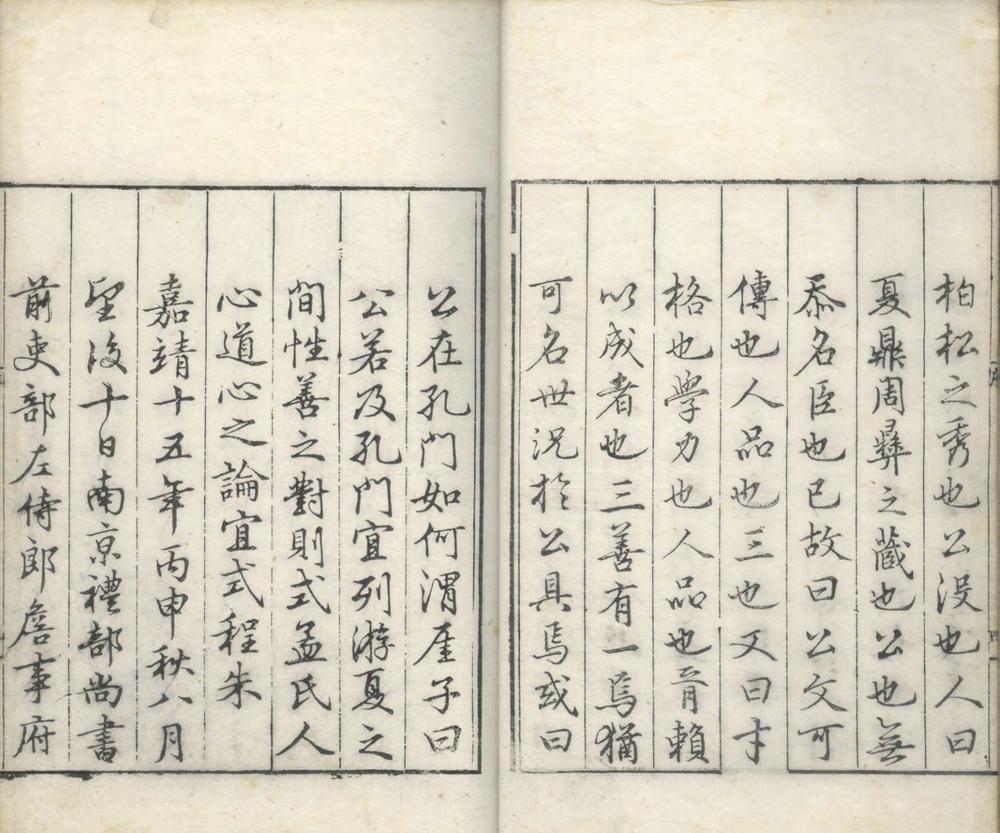 柏松之秀也公没也人曰
夏鼎周彝之藏也公也無
忝名臣也已故曰公文可
傳也人品也三也又曰才
格也學力也人品也胥賴
以成者也三善有一焉猶
可名世況於公具焉或曰
公在孔門如何渭厓子曰
公若及孔門宜列游夏之
間性善之對則式孟氏人
心道心之論宜式程朱
嘉靖十五年丙申秋八月
聖後十日南京禮部尚書
前吏部左侍郎詹事府